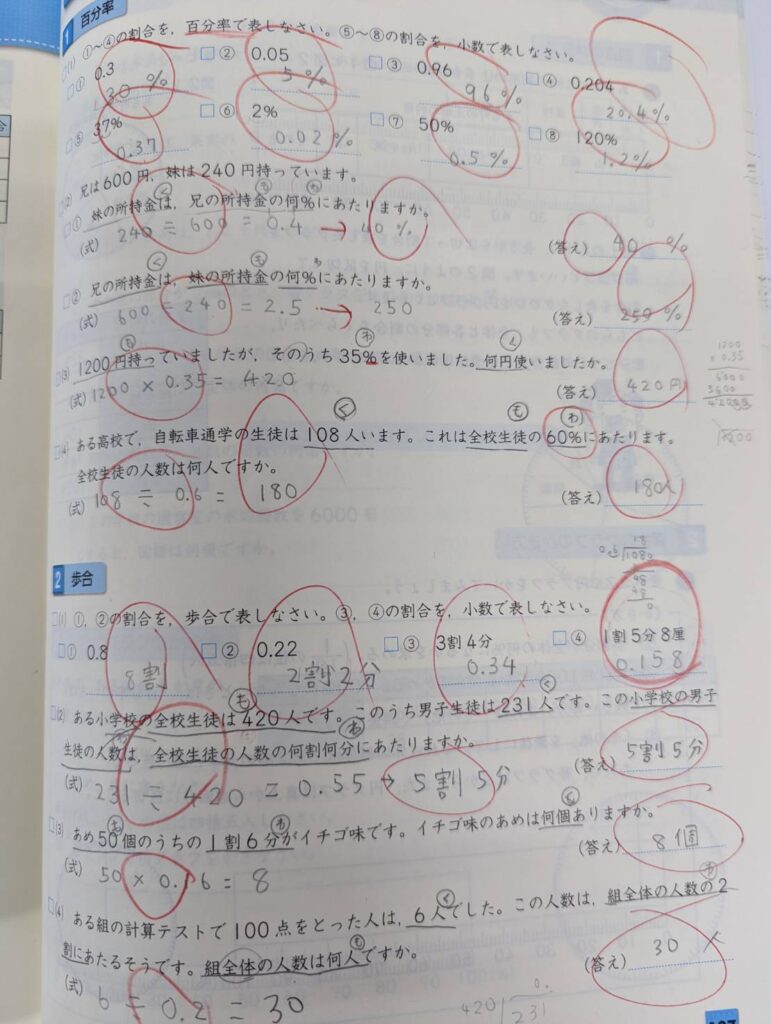 1 百分率
(1) ①～④の割合を，百分率で表しなさい。⑤～⑧の割合を，小数で表しなさい。
① 0.3 ② 0.05 ③ 0.96 ④ 0.204
30 % 5 % 96 % 20.4 %
⑤ 37% ⑥ 2% ⑦ 50% ⑧ 120%
0.37 0.02 % 0.5 % 1.2 %
(2) 兄は600円，妹は240円持っています。
く も わ
① 妹の所持金は，兄の所持金の何%にあたりますか。
(式) 240 ÷ 600 = 0.4 → 40 % (答え) 40 %
く も わ
② 兄の所持金は，妹の所持金の何%にあたりますか。
(式) 600 ÷ 240 = 2.5 → 250 (答え) 250 %
も わ く
(3) 1200円持っていましたが，そのうち35%を使いました。何円使いましたか。
(式) 1200 × 0.35 = 420 (答え) 420円
1200
× 0.35
6000
3600
く も わ
(4) ある高校で，自転車通学の生徒は108人います。これは全校生徒の60%にあたります。
全校生徒の人数は何人ですか。
(式) 108 ÷ 0.6 = 180 (答え) 180人
18
1080
48
48
0
2 歩合
(1) ①，②の割合を，歩合で表しなさい。③，④の割合を，小数で表しなさい。
① 0.8 ② 0.22 ③ 3割4分 ④ 1割5分8厘
8割 2割2分 0.34 0.158
も く
(2) ある小学校の全校生徒は420人です。このうち男子生徒は231人です。この小学校の男子
わ
生徒の人数は，全校生徒の人数の何割何分にあたりますか。
(式) 231 ÷ 420 = 0.55 → 5割5分 (答え) 5割5分
も わ く
(3) あめ50個のうちの1割6分がイチゴ味です。イチゴ味のあめは何個ありますか。
(式) 50 × 0.16 = 8 (答え) 8個
く わ
(4) ある組の計算テストで100点をとった人は，6人でした。この人数は，組全体の人数の2
も
割にあたるそうです。組全体の人数は何人ですか。
(式) 6 ÷ 0.2 = 30 (答え) 30 人
0.
420 231